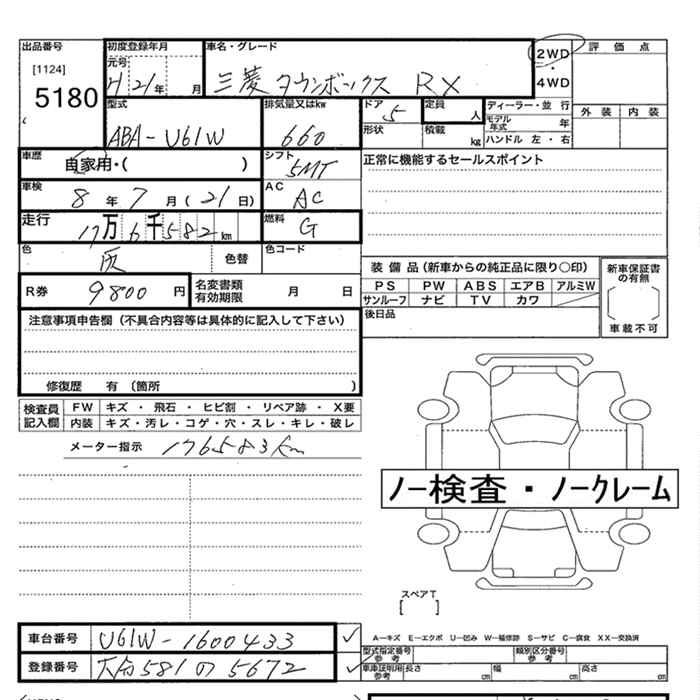 出品番号 初度登録年月 車名・グレード 2WD 評価点
[1124] 元号 ・
5180 H21年 月 三菱 タウンボックス RX 4WD
型式 排気量又はkw ドア 定員 ディーラー・並行 外装 内装
ABA-U61W 660 5 人 モデル年式 年
形状 積載 kg ハンドル 左・右
車歴 自家用・( ) シフト 5MT 正常に機能するセールスポイント
車検 8年7月(21日) AC AC
走行 17万6千582km 燃料 G
色 灰 色替 色コード
装備品(新車からの純正品に限り○印) 新車保証書の有無
R券 9800円 名変書類有効期限 月 日 PS PW ABS エアB アルミW
サンルーフ ナビ TV カワ
注意事項申告欄(不具合内容等は具体的に記入して下さい) 後日品 車載不可
修復歴 有 (箇所 )
検査員記入欄 FW キズ・飛石・ヒビ割・リペア跡・X要
内装 キズ・汚レ・コゲ・穴・スレ・キレ・破レ
メーター指示 176583km
ノー検査・ノークレーム
スペアT
[ ]
車台番号 U61W-1600433 A―キズ E―エクボ U―凹み W―補修跡 S―サビ C―腐食 XX―交換済
型式指定番号 参考 類別区分番号 参考
登録番号 581 の 5672 車庫証明用 参考 長さ cm 幅 cm 高さ cm